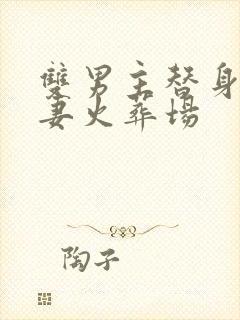 雙男主替身
妻火葬場
陶子